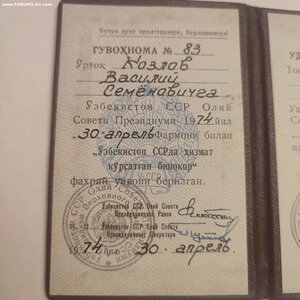 www.FORUMS-SU.com
Бутун дунё пролетарлари, бирлашингиз!
ГУВОҲНОМА № 83
Ўртоқ Козлов
Василий
Семёновичга
Ўзбекистон ССР Олий
Совети Президиуми 1974 йил
30-апрель Фармони билан
„Ўзбекистон ССРда хизмат
кўрсатган бинокор"
фахрий унвони берилган.
Ўзбекистон ССР Олий Совети
Президиумининг Раиси
Ўзбекистон ССР Олий Совети
Президиумининг Секретари
1974 йил 30-апрель